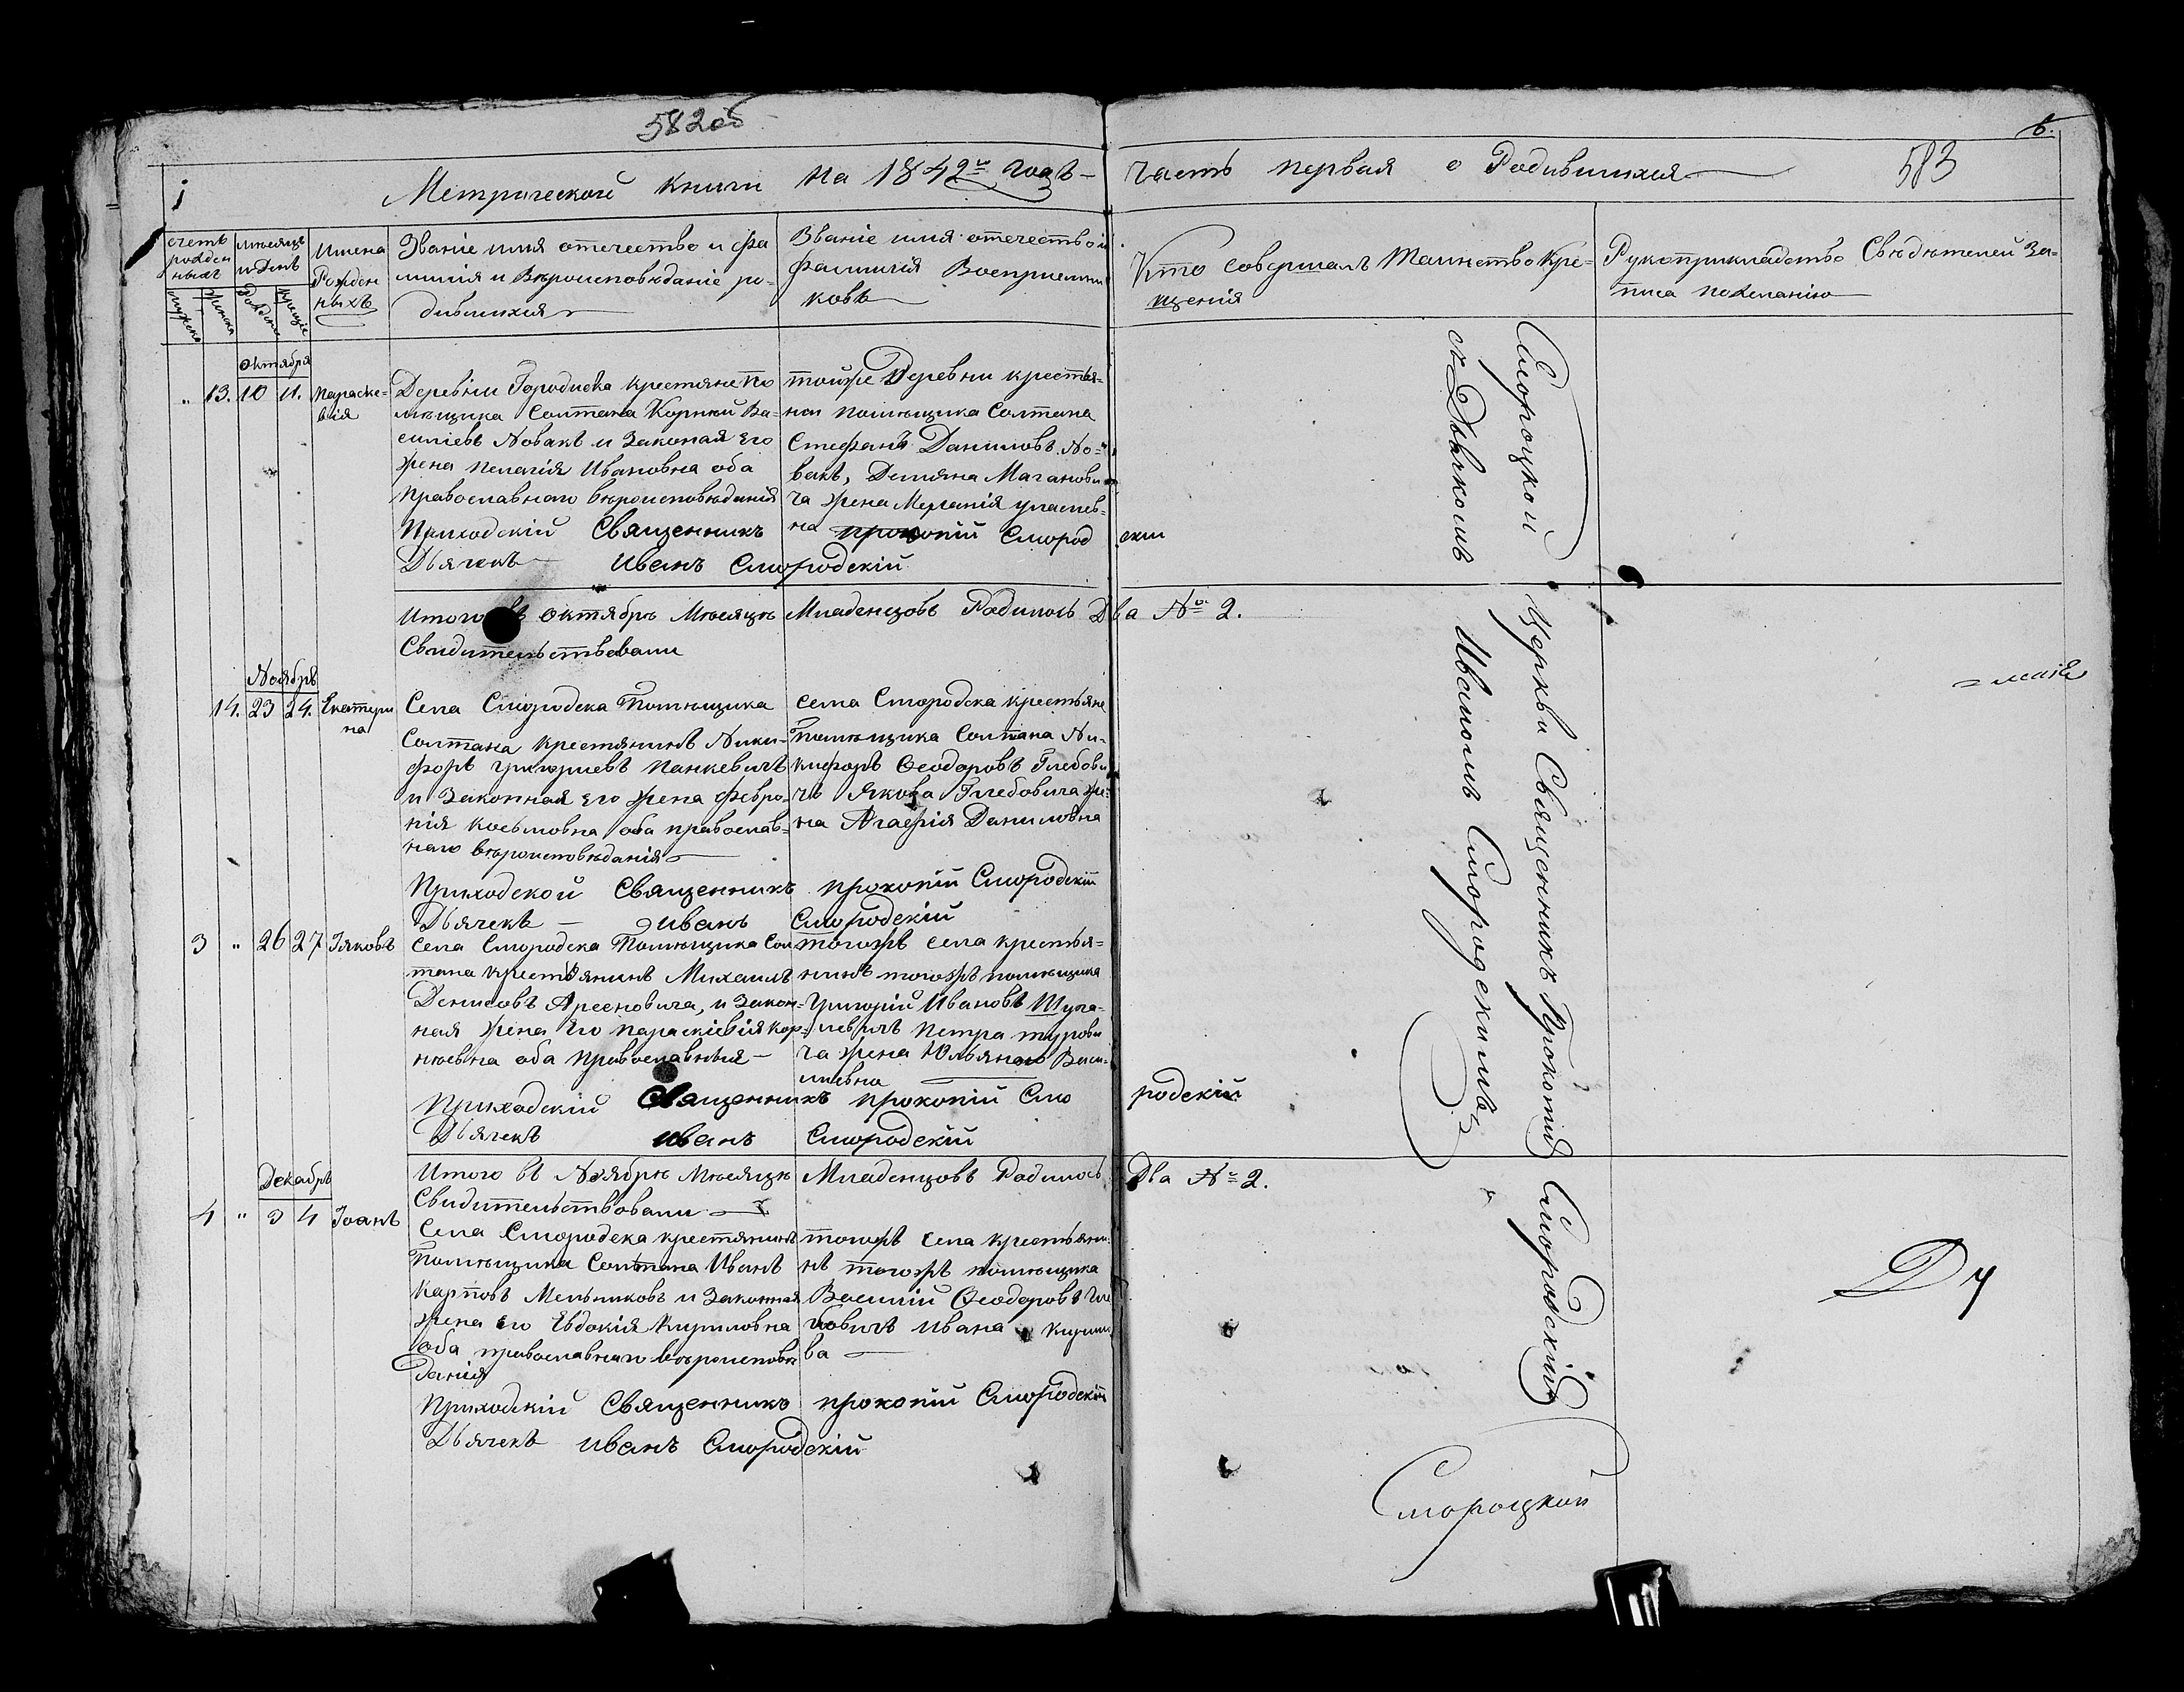 582 об
6.
583
Метрической книги на 1842й годъ – часть первая о Родившихся
счетъ рожденныхъ
мѣсяцъ и День
Имена Рожденныхъ
Званіе имя отечество и фа
милія и Вѣроисповѣданіе ро-
дившихся
Званіе имя отечество и
фамилія Восприемни
ковъ
Кто совершалъ Таинство Кре-
щенія
Рукоприкладство Свѣдѣтелей За-
писа по желанію
мужска
женска
Октября
„ 13. 10 11. Параске-
вія
Деревни Городиска крестяне по
мѣщика Солтана Корнѣй Ва-
силіевъ Новакъ и Законая Его
жена Пелагія Ивановна оба
Православнаго вѣроисповѣданія
тойже Деревни крестья-
нои помѣщика Солтана
Стефанъ Даниловъ Но-
вакъ, Демяна
ча жена
на
Приходскій Священникъ прокопій Смород
скій
Дьячекъ Иванъ Смородскій
Итого въ октябрѣ Мѣсяцѣ Младенцовъ Родилось Два № 2.
Свидительствовали
Ноябрь
14. 23 24. Екатери
на
Села Смородска Помѣщика
Солтана крестянинъ Ники-
форъ Григориевъ Панкевичъ
и Законная Его жена Февро-
нія Косьмовна оба православ-
наго вѣроисповѣданія
села Смородска крестьяне
Помѣщика Солтана Ни-
кифоръ Ѳеодоровъ Глебови
чъ Якова Глебовича же-
на Агафія Даниловна
Приходской Священникъ прокопій Смородскій
Дьячекъ – Иванъ Смородскій
3 „ 26 27 Іяковъ
Села Смородска Помѣщика Сол
тана крестьянинъ Михаилъ
Денисовъ Арсеновича, и Закон-
ная жена Его параскіевія Кор-
нѣевна оба православныя –
тогожъ села крестья-
нинъ тогожъ помѣщика
Григорій Ивановъ
Петра Турови
ча жена Ульяна Васи-
лиевна
Приходскій Священникъ прокопій Смо
родскій
Дьячекъ Иванъ Смородскій
Итого въ Ноябрѣ Мѣсяцѣ Младенцовъ Родилось Два № 2.
Свидительствовали
Декабрь
4 „ 3 4 Іоанъ
Села Смородска крестянинъ
Помѣщика Солтана Иванъ
Карповъ Мельниковъ и Законная
жена Его Евдокія Кириловна
оба православнаго вѣроисповѣ
данія
тогожъ села крестьяни
нъ тогожъ помѣщика
Василій Ѳеодоровъ Гле
бовичъ Ивана
ва
Приходскій Священникъ прокопій Смородскій
Дьячекъ Иванъ Смородскій
Смороцкой Церкви Священникъ Прокопій Смородскій
съ Дьячкомъ Иваномъ Смородскимъ
Смороцкой